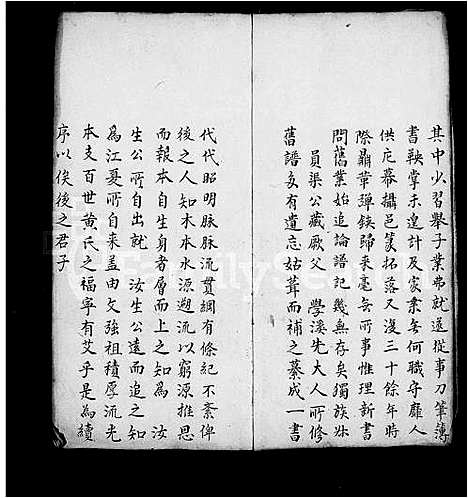 其中少習舉子業弗就遂從事刀筆簿
書鞅掌未遑計及家業無何職守靡人
供庀幕攝邑篆拓落又淺三十餘年時
際鼎革彈鋏歸來毫無所事惟理新書
問舊業始追論譜記幾無存矣獨族姪
員渠公藏厥父 學溪先大人所修
舊譜多有遺忘姑葺而補之纂成一書
代代昭明脉脉流貫綱有條紀不紊俾
後之人知木本水源遡流以窮源推思
而報本自生身者層而上之知為 汝
生公所自出就 汝生公遠而追之知
為江夏所自来盖由文強祖積厚流光
本支百世黄氏之福寧有艾乎是為續
序以俟後之君子